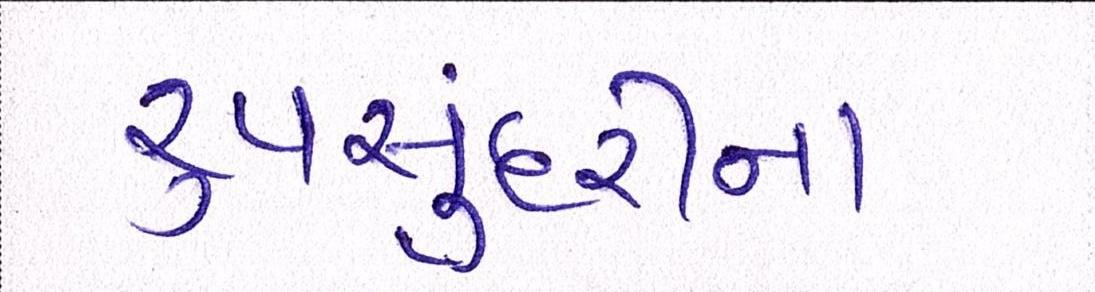 રુપસુંદરીના